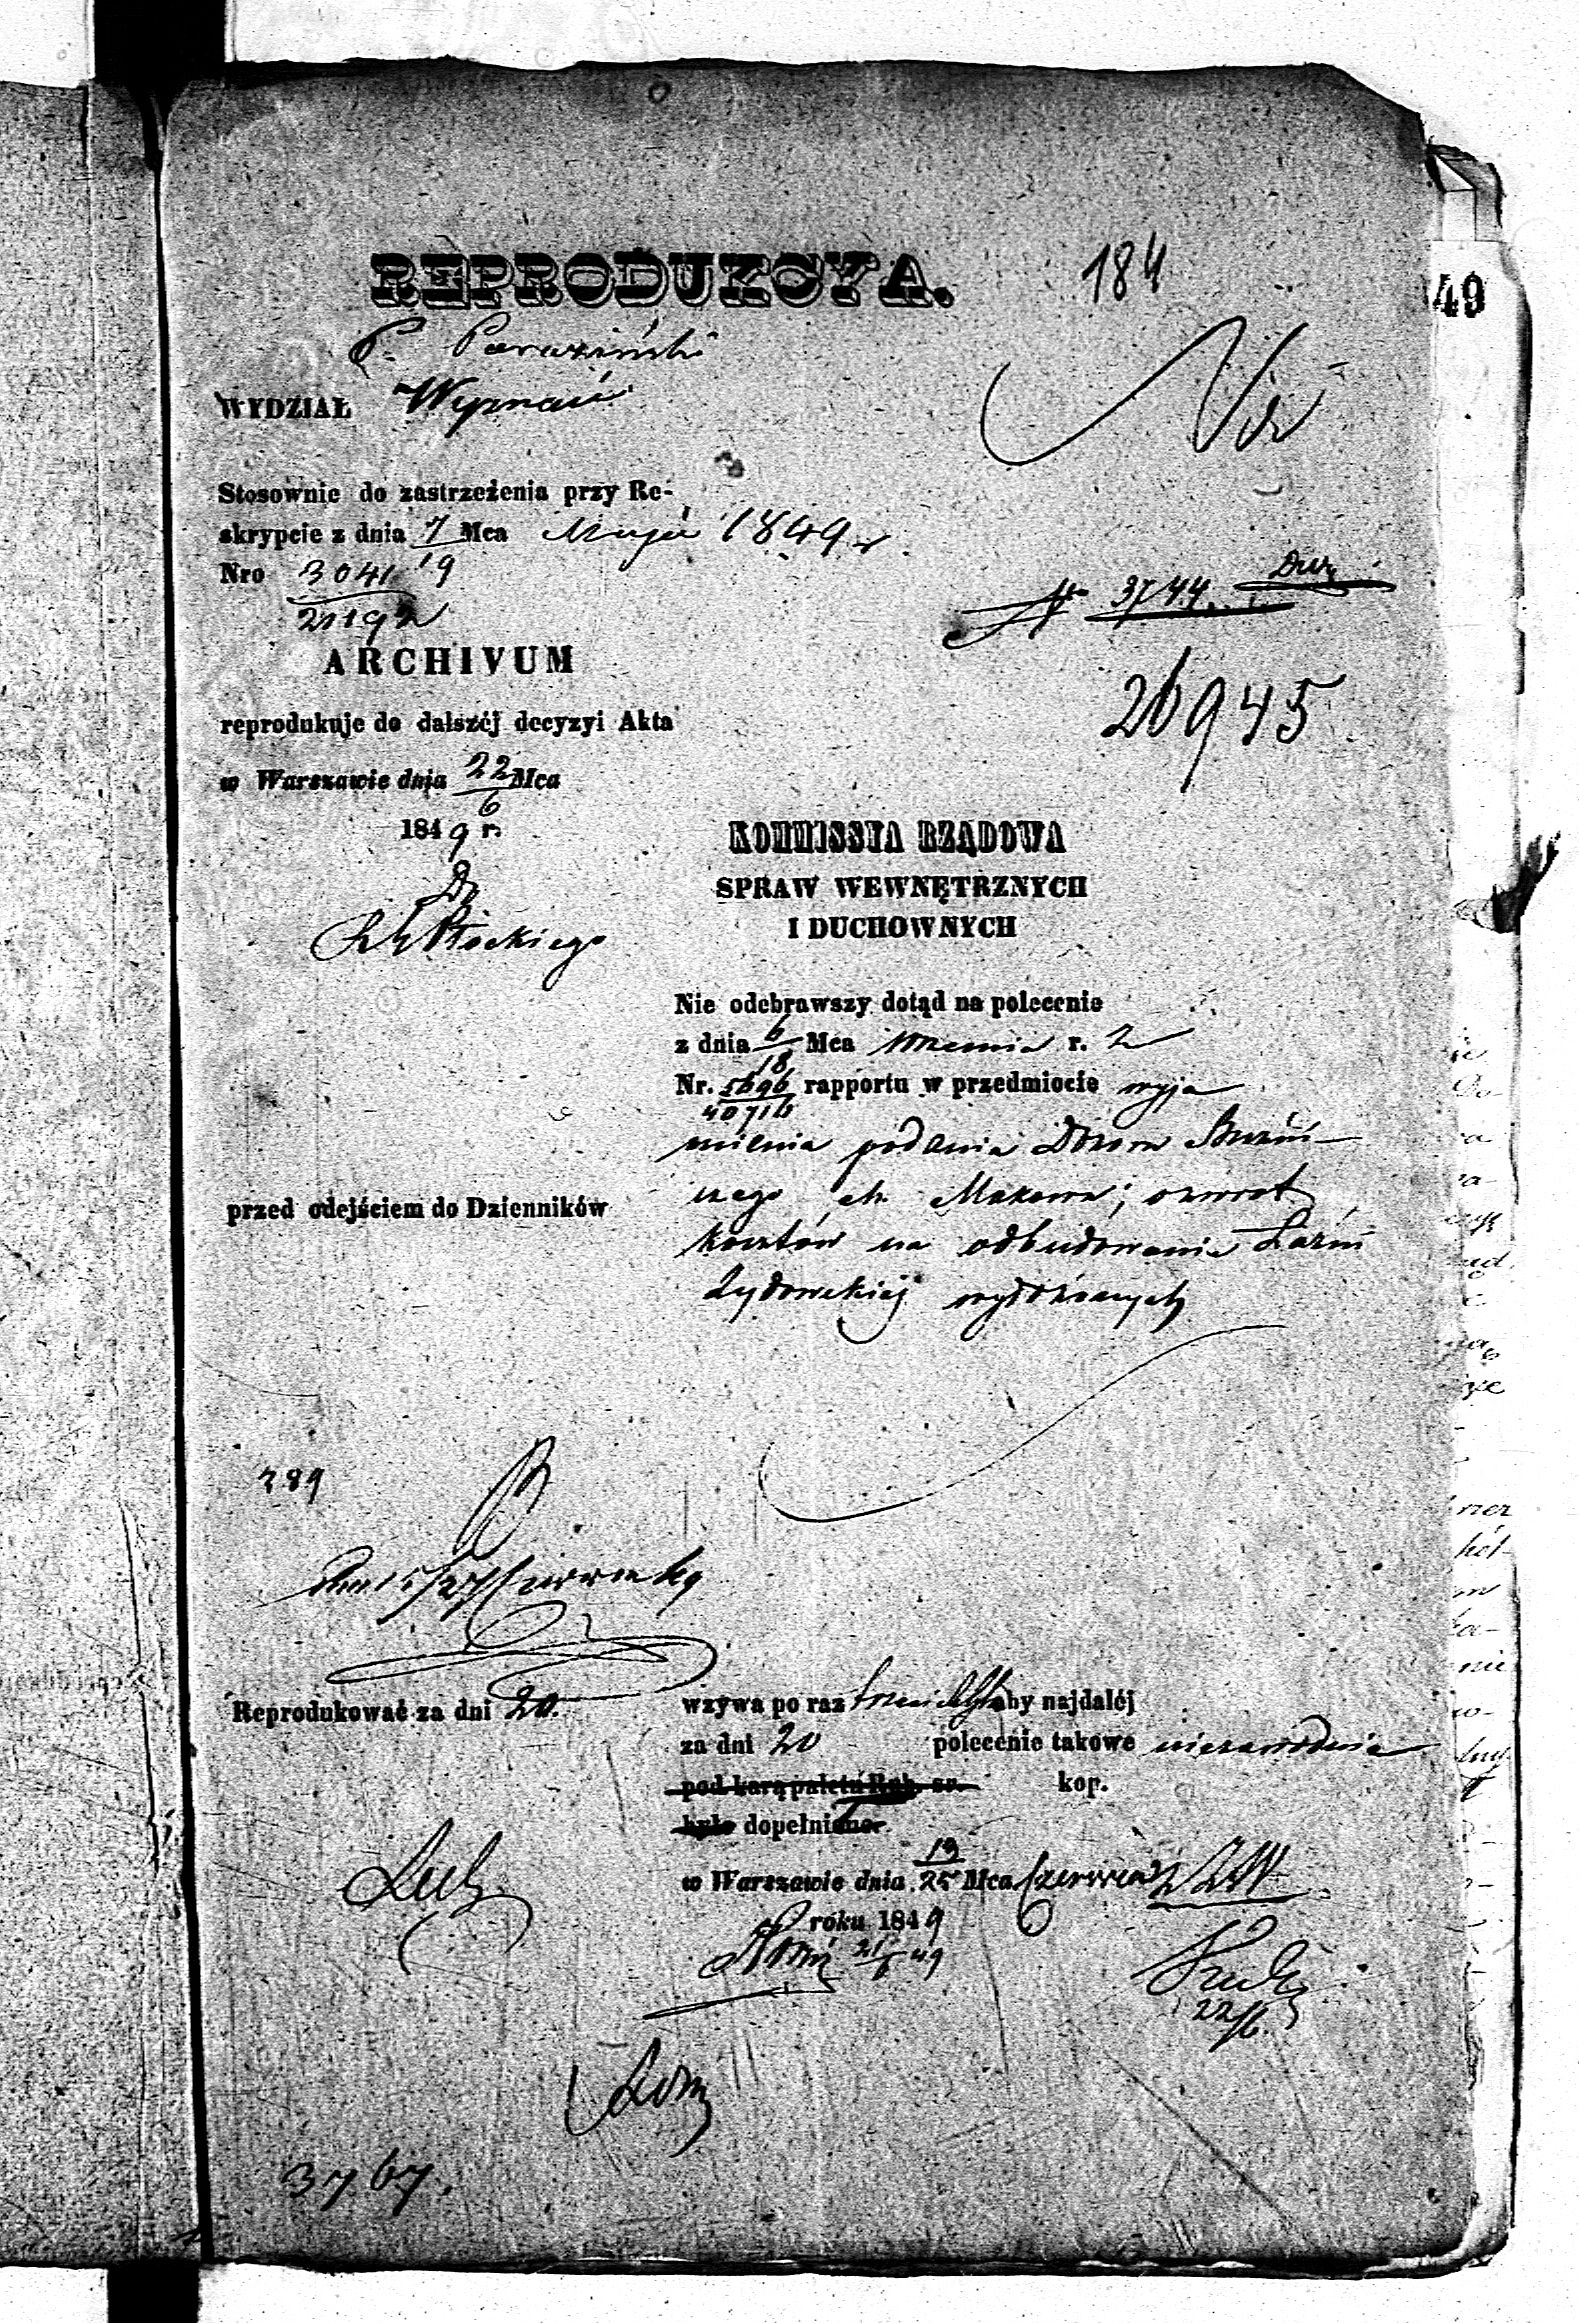 REPRODUKCYA.
184
49
P.
WYDZIAŁ Wyznań
Stosownie do zastrzeżenia przy Re-
skrypcie z dnia 7 Mca Maja 1849 r.
Nro 3041 19
21192
N 3744
ARCHIVUM
26945
reprodukuje do dalszéj decyzyi Akta
w Warszawie dnia 22/6 Mca
1849 r.
KOMMISSYA RZĄDOWA
SPRAW WEWNĘTRZNYCH
I DUCHOWNYCH
Płockiego
Nie odebrawszy dotąd na polecenie
z dnia 6/18 Mca r.
Nr. 5696/40716 rapportu w przedmiocie wyja
śnienia podania Dozoru Bożni
czego m. Makowa; o zwrot
przed odejściem do Dzienników
kosztów na odbudowanie Łaźni
Żydowskiej wyłożonych
289
15/27 Czerwca 49
Reprodukować za dni 20.
wzywa po raz trzeci aby najdaléj
za dni 20 polecenie takowe niezawodnie
pod karą paletu Rub. sr. kop.
było dopełnione.
w Warszawie dnia 13/25 Mca Czerwca
roku 1849
21/6 49
22/6.
3767.